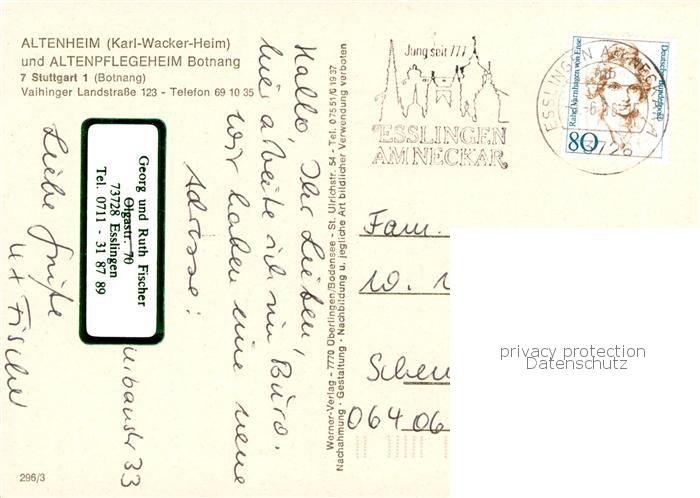 ALTENHEIM (Karl-Wacker-Heim)
und ALTENPFLEGEHEIM Botnang
7 Stuttgart 1 (Botnang)
Vaihinger Landstraße 123 - Telefon 69 10 35
Hallo, Ihr Lieben,
hier arbeite ich im Büro.
Wir haben eine neue
Adresse:
Georg und Ruth Fischer
Olgastr. 70
73728 Esslingen
Tel. 0711 - 31 87 89
33
Liebe Grüße
Fischer
296/3
Werner-Verlag - 7770 Überlingen/Bodensee - St. Ulrichstr. 54 - Tel. 07551/61937
Nachahmung - Gestaltung - Nachbildung u. jegliche Art bildlicher Verwendung verboten
Jung seit 777
ESSLINGEN
AM NECKAR
ESSLINGEN AM NECKAR
Rahel Varnhagen von Ense
Deutsche Bundespost
80
Fam.
10.
064 06
privacy protection
Datenschutz